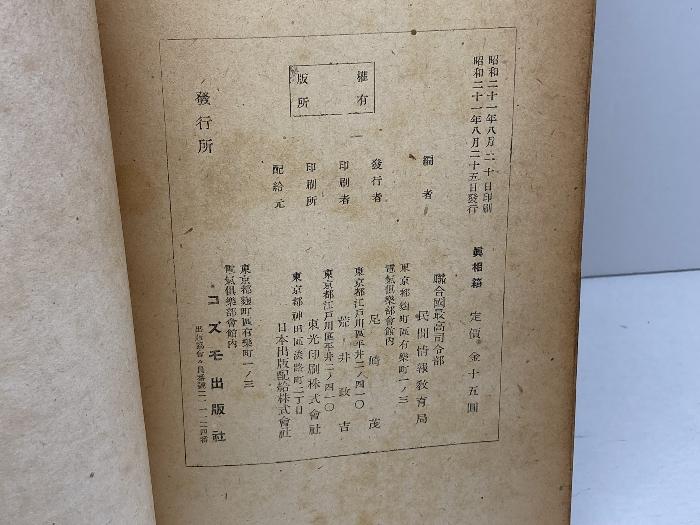 昭和二十一年八月二十日印刷
昭和二十一年八月二十五日發行
眞相箱　定價　金十五圓
編者
聯合國最高司令部
民間情報敎育局
東京都麹町區有樂町一ノ三
電氣俱樂部會館內
發行者　尾崎茂
東京都江戸川區平井二ノ四一〇
印刷者　荒井政吉
東京都江戸川區平井二ノ四一〇
印刷所　東光印刷株式會社
東京都神田區淡路町二丁目
配給元　日本出版配給株式會社
權有
版所
東京都麹町區有樂町一ノ三
電氣俱樂部會館內
發行所　コズモ出版社